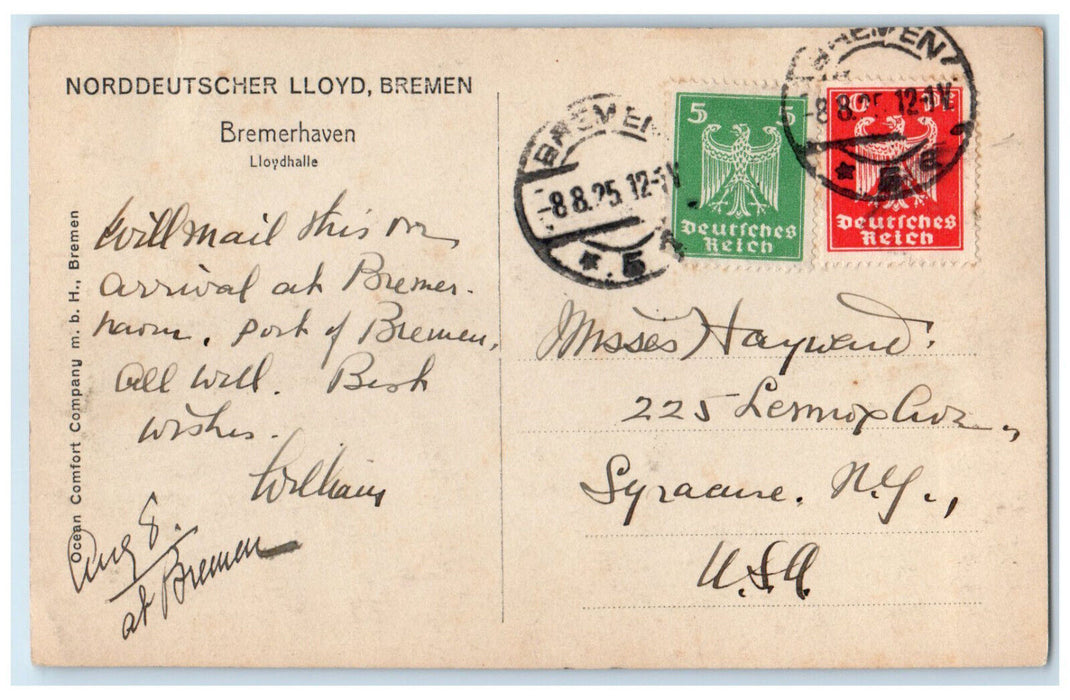 NORDDEUTSCHER LLOYD, BREMEN
Bremerhaven
Lloydhalle
Ocean Comfort Company m. b. H., Bremen
Will mail this on
arrival at Bremer-
haven, port of Bremen,
All well. Best
wishes.
William
Aug 8.
at Bremen
BREMEN
-8 8.25. 12-1V
* 5
5 5
Deutsches
Reich
BREMEN
-8 8.25. 12-1V
* 5
Deutsches
Reich
Misses Hayward.
225 Lennox Ave.,
Syracuse. N.Y.,
U.S.A.